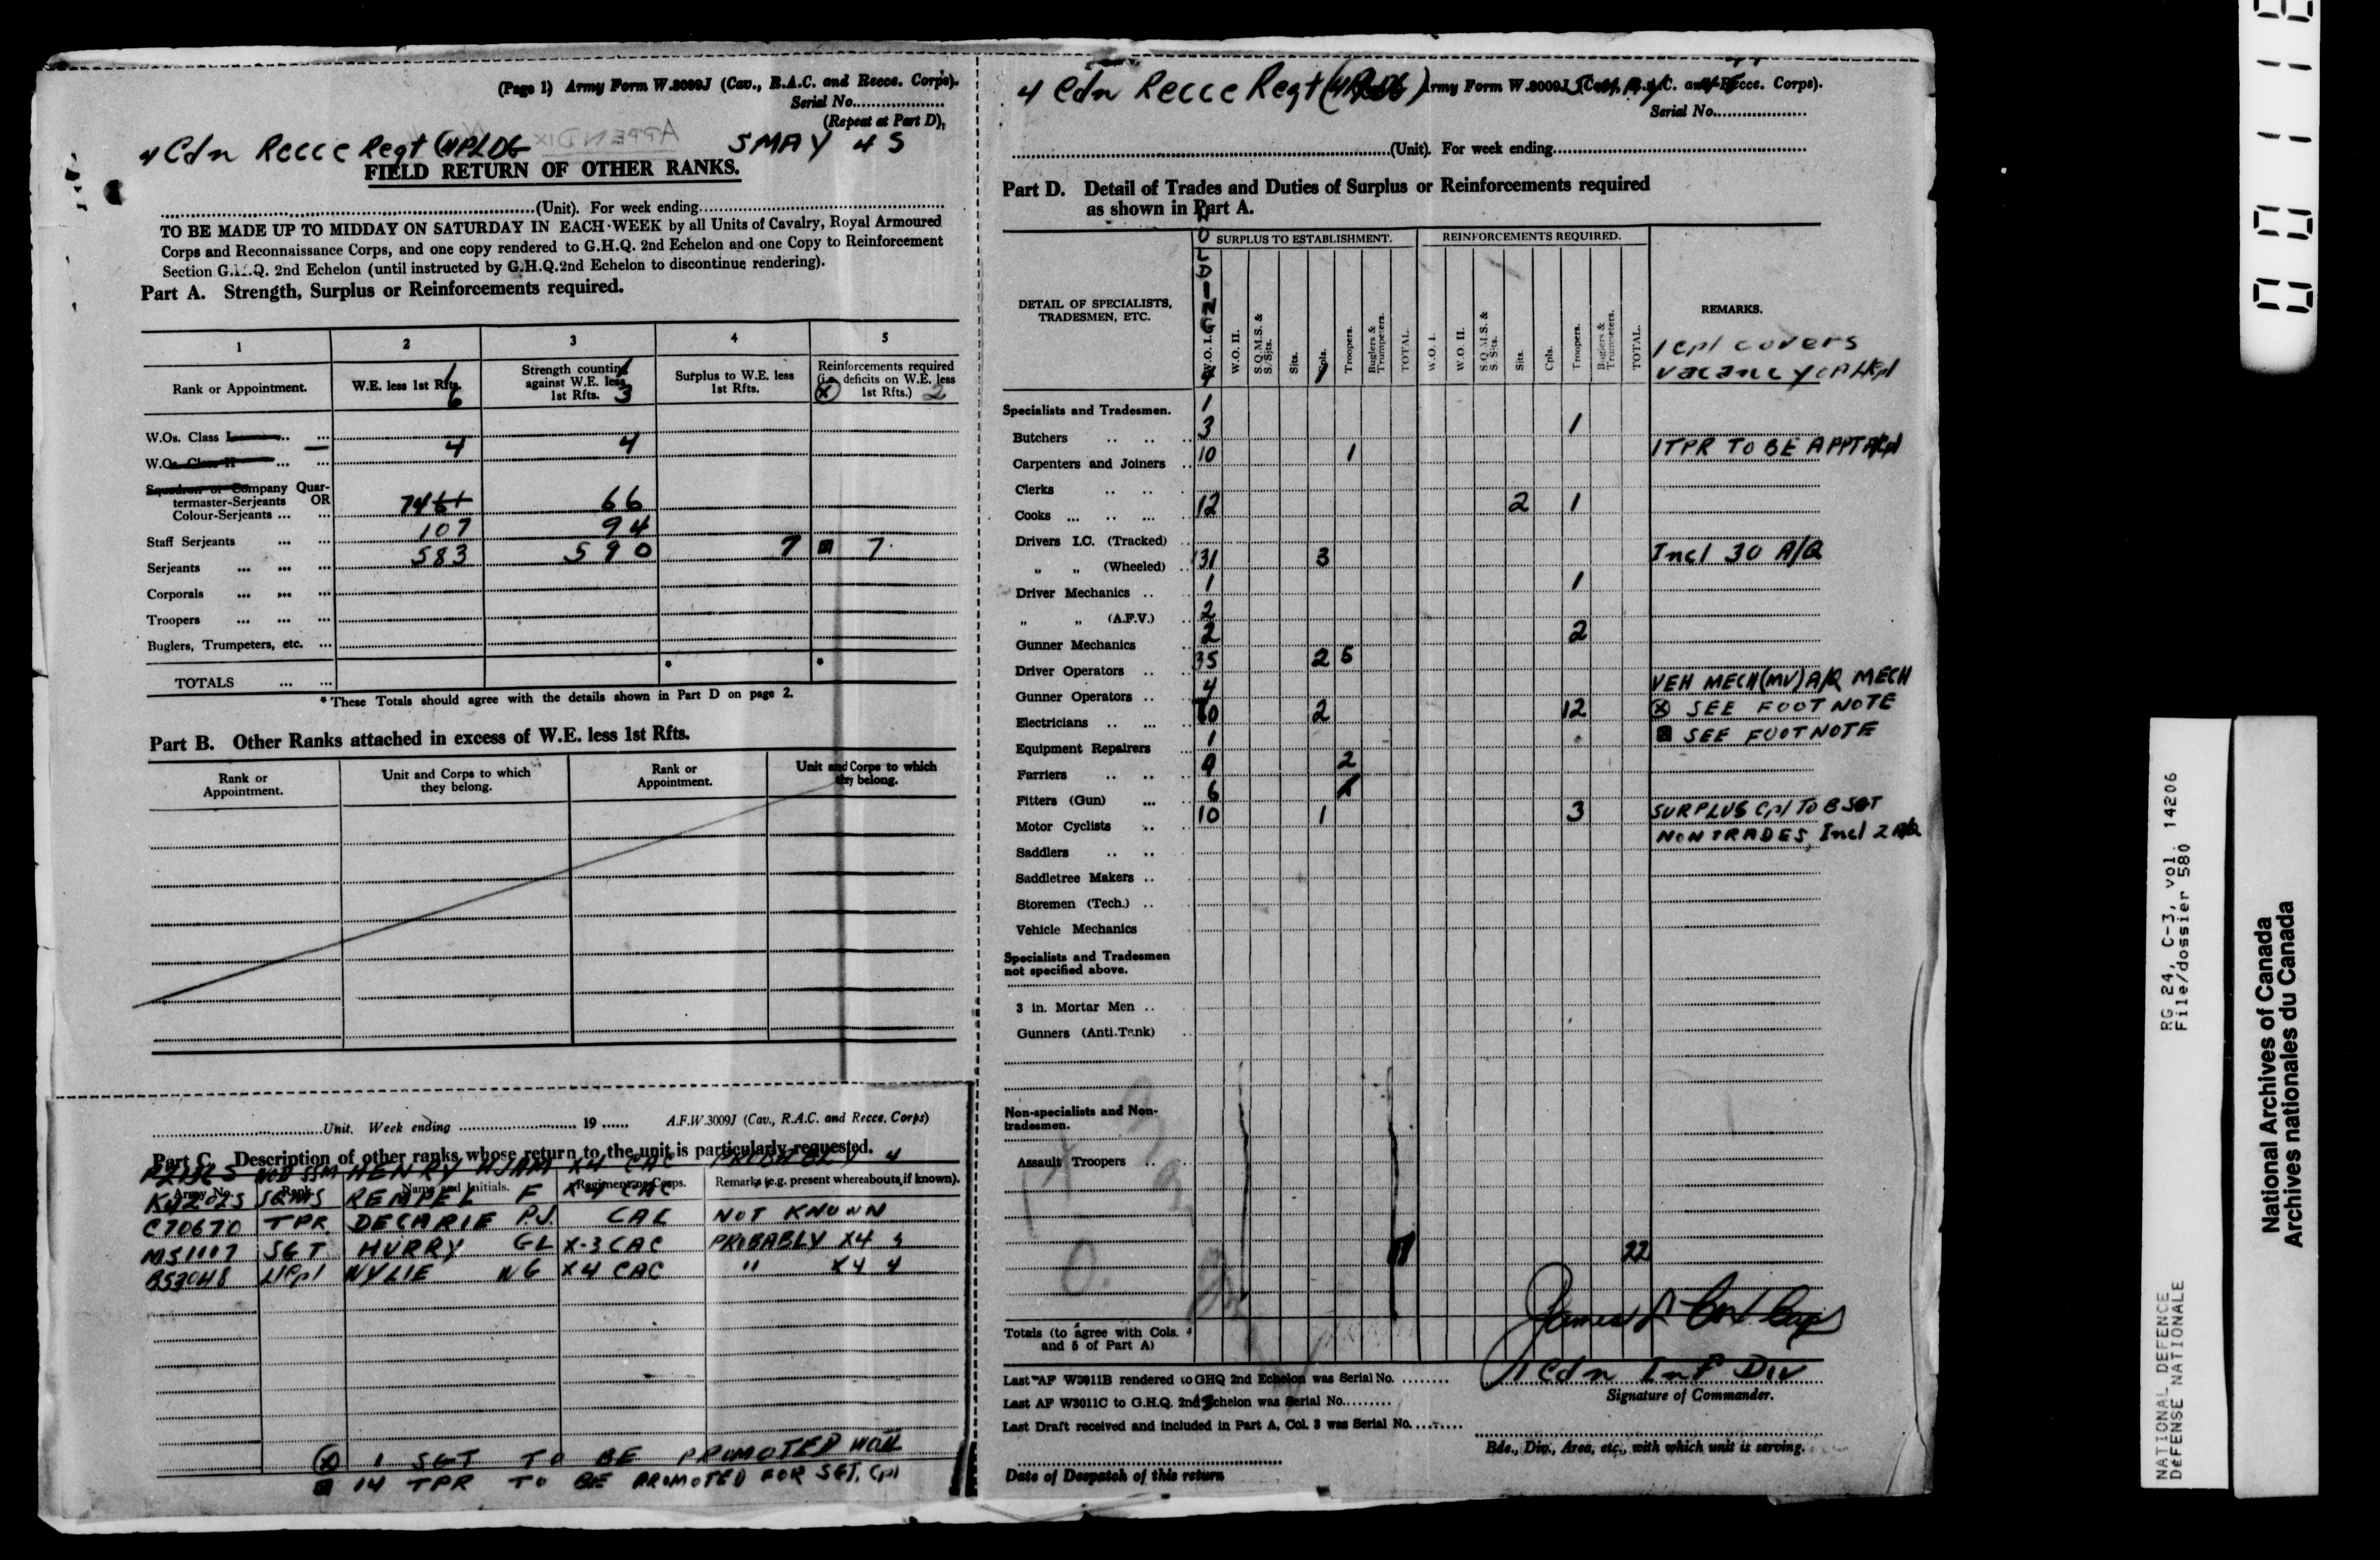 (Page 1) Army Form W.3009J (Cav., R.A.C. and Recce. Corps).
Serial No....................
(Repeat at Part D),
APPENDIX
4 Cdn Recce Regt (4PLDG 5 MAY 45
FIELD RETURN OF OTHER RANKS.
(Unit). For week ending
TO BE MADE UP TO MIDDAY ON SATURDAY IN EACH WEEK by all Units of Cavalry, Royal Armoured
Corps and Reconnaissance Corps, and one copy rendered to G.H.Q. 2nd Echelon and one Copy to Reinforcement
Section G.H.Q. 2nd Echelon (until instructed by G.H.Q.2nd Echelon to discontinue rendering).
Part A. Strength, Surplus or Reinforcements required.
1 2 3 4 5
Rank or Appointment.
W.E. less 1st Rfts.
Strength counting
against W.E. less
1st Rfts.
Surplus to W.E. less
1st Rfts.
Reinforcements required
(i.e. deficits on W.E. less
1st Rfts.)
6 3 2
W.Os. Class I
4 4
W.Os. Class II
Squadron or Company Quar-
termaster-Serjeants OR
Colour-Serjeants ...
74 66
107 94
Staff Serjeants
583 590 7 7
Serjeants
Corporals
Troopers
Buglers, Trumpeters, etc.
TOTALS
* These Totals should agree with the details shown in Part D on page 2.
Part B. Other Ranks attached in excess of W.E. less 1st Rfts.
Rank or
Appointment.
Unit and Corps to which
they belong.
Rank or
Appointment.
Unit and Corps to which
they belong.
Unit. Week ending 19 ...... A.F.W.3009J (Cav., R.A.C. and Recce. Corps)
Part C. Description of other ranks whose return to the unit is particularly requested.
Army No. Rank Name and Initials. Regiment or Corps. Remarks (e.g. present whereabouts, if known).
SSM HENRY X4 CAC PROBABLY 4
REMPEL F X-4 CAC
C70670 TPR DECARIE P.J. CAC NOT KNOWN
SGT HURRY GL X-3 CAC PROBABLY X4
B53048 L/Cpl WYLIE WG X4 CAC " X4 4
(X) 1 SGT TO BE PROMOTED WOII
14 TPR TO BE PROMOTED FOR SGT, Cpl
4 Cdn Recce Regt (4PLDG) Army Form W.3009J (Cav., R.A.C. and Recce. Corps).
Serial No....................
(Unit). For week ending
Part D. Detail of Trades and Duties of Surplus or Reinforcements required
as shown in Part A.
SURPLUS TO ESTABLISHMENT. REINFORCEMENTS REQUIRED.
DETAIL OF SPECIALISTS,
TRADESMEN, ETC.
W.O. I.
W.O. II.
S.Q.M.S. &
S/Sjts.
Sjts.
Cpls.
Troopers.
Buglers &
Trumpeters.
TOTAL.
W.O. I.
W.O. II.
S.Q.M.S. &
S.Sjts.
Sjts.
Cpls.
Troopers.
Buglers &
Trumpeters.
TOTAL.
REMARKS.
1 cpl covers
vacancy
Specialists and Tradesmen. 1
Butchers 3 1
1 TPR TO BE APPT
Carpenters and Joiners 10 1
Clerks
Cooks 12 2 1
Drivers I.C. (Tracked)
„ „ (Wheeled) 131 3 Incl 30 A/Q
Driver Mechanics 1 1
„ „ (A.F.V.) 2
Gunner Mechanics 2 2
Driver Operators 35 2 5
Gunner Operators 4 VEH MECH(MV) A/Q MECH
Electricians 2 12 (X) SEE FOOTNOTE
Equipment Repairers 1 SEE FOOTNOTE
Farriers 9 2
Fitters (Gun) 6
Motor Cyclists 10 1 3 SURPLUS Cpl TO B SGT
NON TRADES, Incl 2 A/Q
Saddlers
Saddletree Makers
Storemen (Tech.)
Vehicle Mechanics
Specialists and Tradesmen
not specified above.
3 in. Mortar Men
Gunners (Anti-Tank)
Non-specialists and Non-
tradesmen.
Assault Troopers
22
Totals (to agree with Cols. 4
and 5 of Part A)
Last AF W3011B rendered to GHQ 2nd Echelon was Serial No.
1 Cdn Inf Div
Signature of Commander.
Last AF W3011C to G.H.Q. 2nd Echelon was Serial No.
Last Draft received and included in Part A, Col. 3 was Serial No.
Bde., Div., Area, etc., with which unit is serving.
Date of Despatch of this return
NATIONAL DEFENCE RG 24, C-3, vol. 14206
DÉFENSE NATIONALE File/dossier 580
National Archives of Canada
Archives nationales du Canada